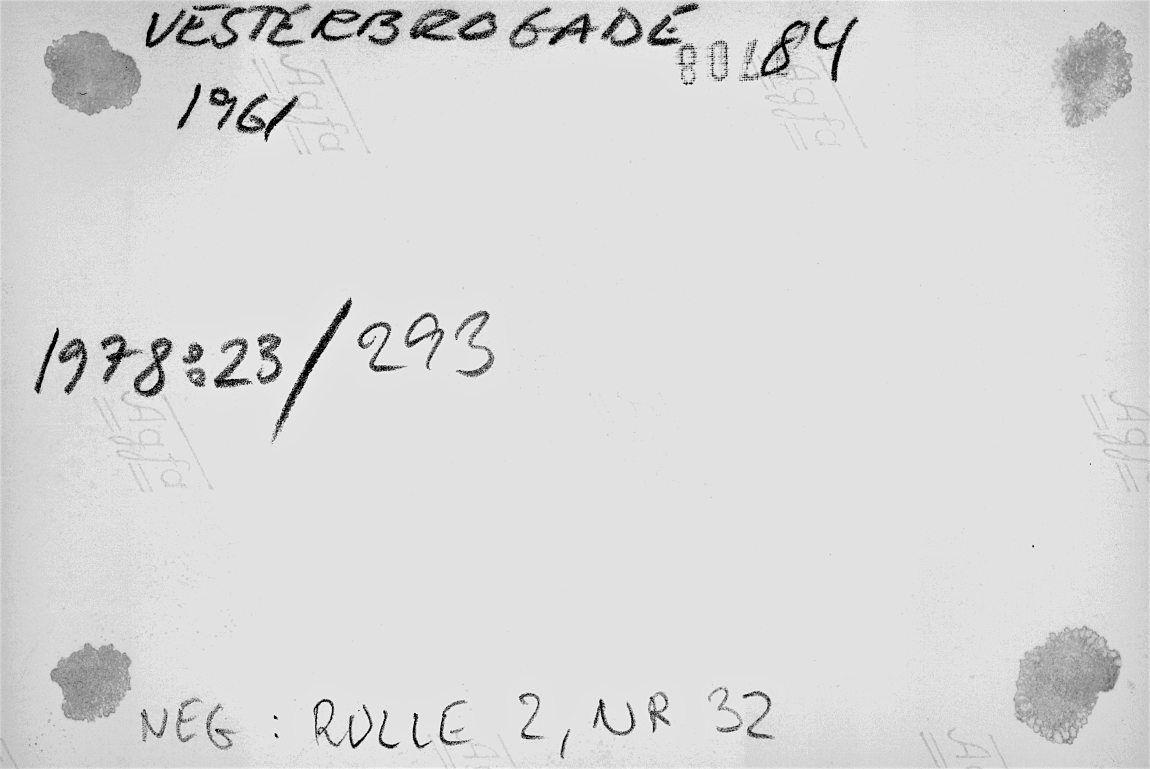 VESTERBROGADE 84
1961
1978:23/293
NEG : RULLE 2, NR 32
Agfa
Agfa
Agfa
Agfa